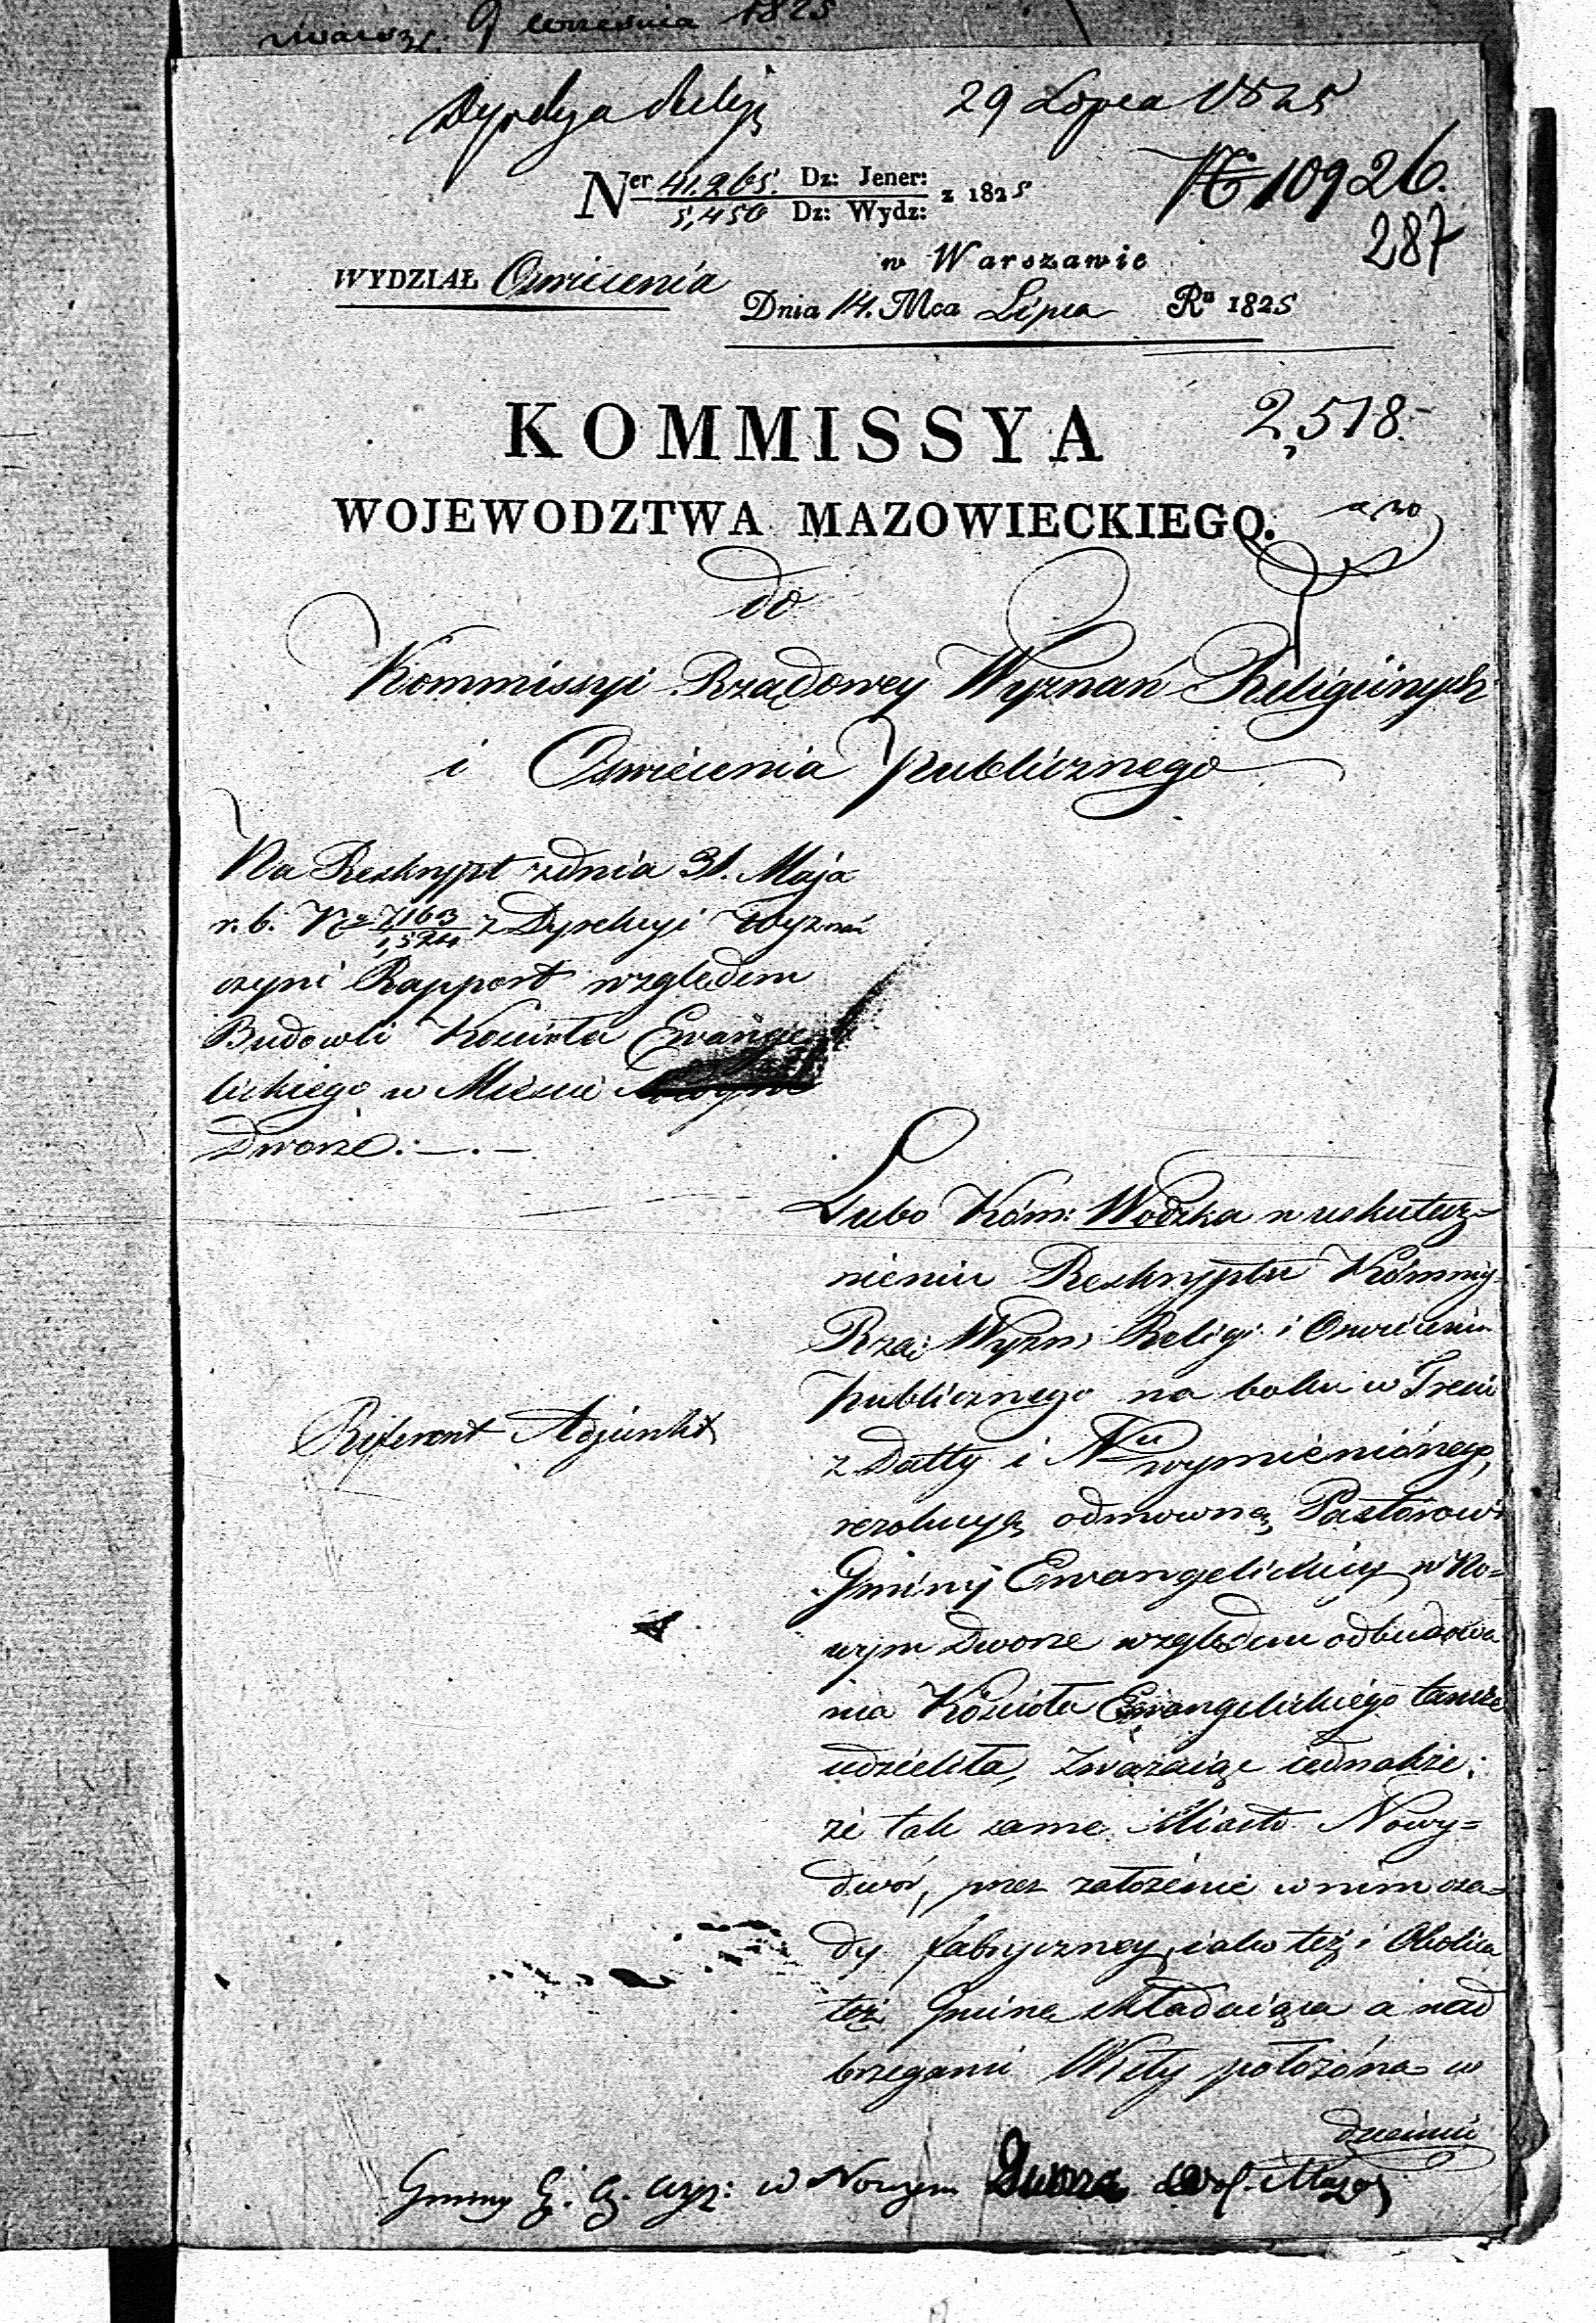 Warsz. 9 Września 1825
Dyrekcya Religij 29 Lipca 1825
Ner 41.265. Dz: Jener: z 1825
5,450 Dz: Wydz:
No 10926.
287
w Warszawie
WYDZIAŁ Oswiecenia
Dnia 14. Mca Lipca Ru 1825
KOMMISSYA
2,518.
WOJEWODZTWA MAZOWIECKIEGO.
do
Kommissyi Rządowey Wyznań Religiinych
i Oswiecenia Publicznego
Na Reskrypt zdnia 31. Maja
r. b. Nr 7,163/1,524 z Dyrekcyi Wyznań
czyni Rapport względem
Budowli Kościoła Ewangie
lickiego w Mieście Nowym
Dworze. — . —
Lubo Kom: Wodzka w uskutecz=
nieniu Reskryptu Kommiss:
Rząd: Wyzn: Religi: i Oswiecenia
Publicznego na boku w Treści
z Datty i Nru wymienionego,
rezolucyą odmowną Pastorowi
Gminy Ewangelickiey w No=
wym Dworze względem odbudowa
nia Kościoła Ewangelickiego tamże
udzieliła, zważaiąc iednakże:
że tak same Miasto Nowy=
dwór, przez założenie w nim osa=
dy fabryczney, iako też i Okolica
też Gminę składaiąca a nad
brzegami Wisły położona w
Referent Adjunkt
Gminy E. A. wyz: w Nowym Dworze Woj. Mazow